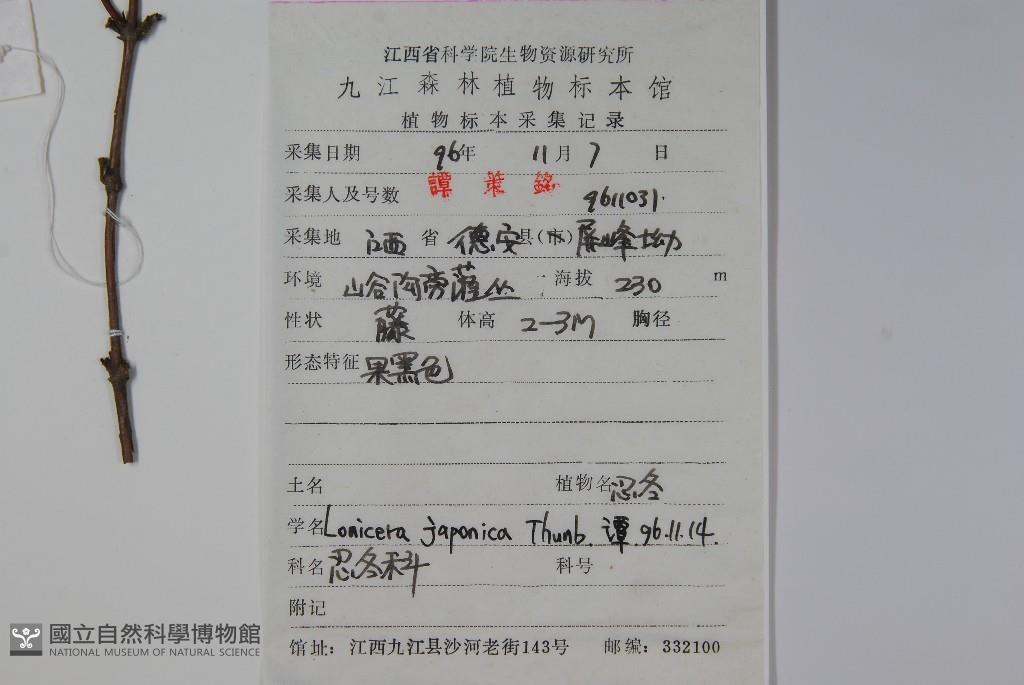 江西省科学院生物资源研究所
九江森林植物标本馆
植物标本采集记录
采集日期 96年 11月 7 日
采集人及号数 譚策銘 9611031.
采集地 江西 省 德安 县(市) 屏峰坳
环境 山谷沟旁灌丛 海拔 230 m
性状 藤 体高 2-3M 胸径
形态特征 果黑色
土名 植物名 忍冬
学名 Lonicera japonica Thunb. 谭 96.11.14.
科名 忍冬科 科号
附记
馆址：江西九江县沙河老街143号 邮编：332100
國立自然科學博物館
NATIONAL MUSEUM OF NATURAL SCIENCE